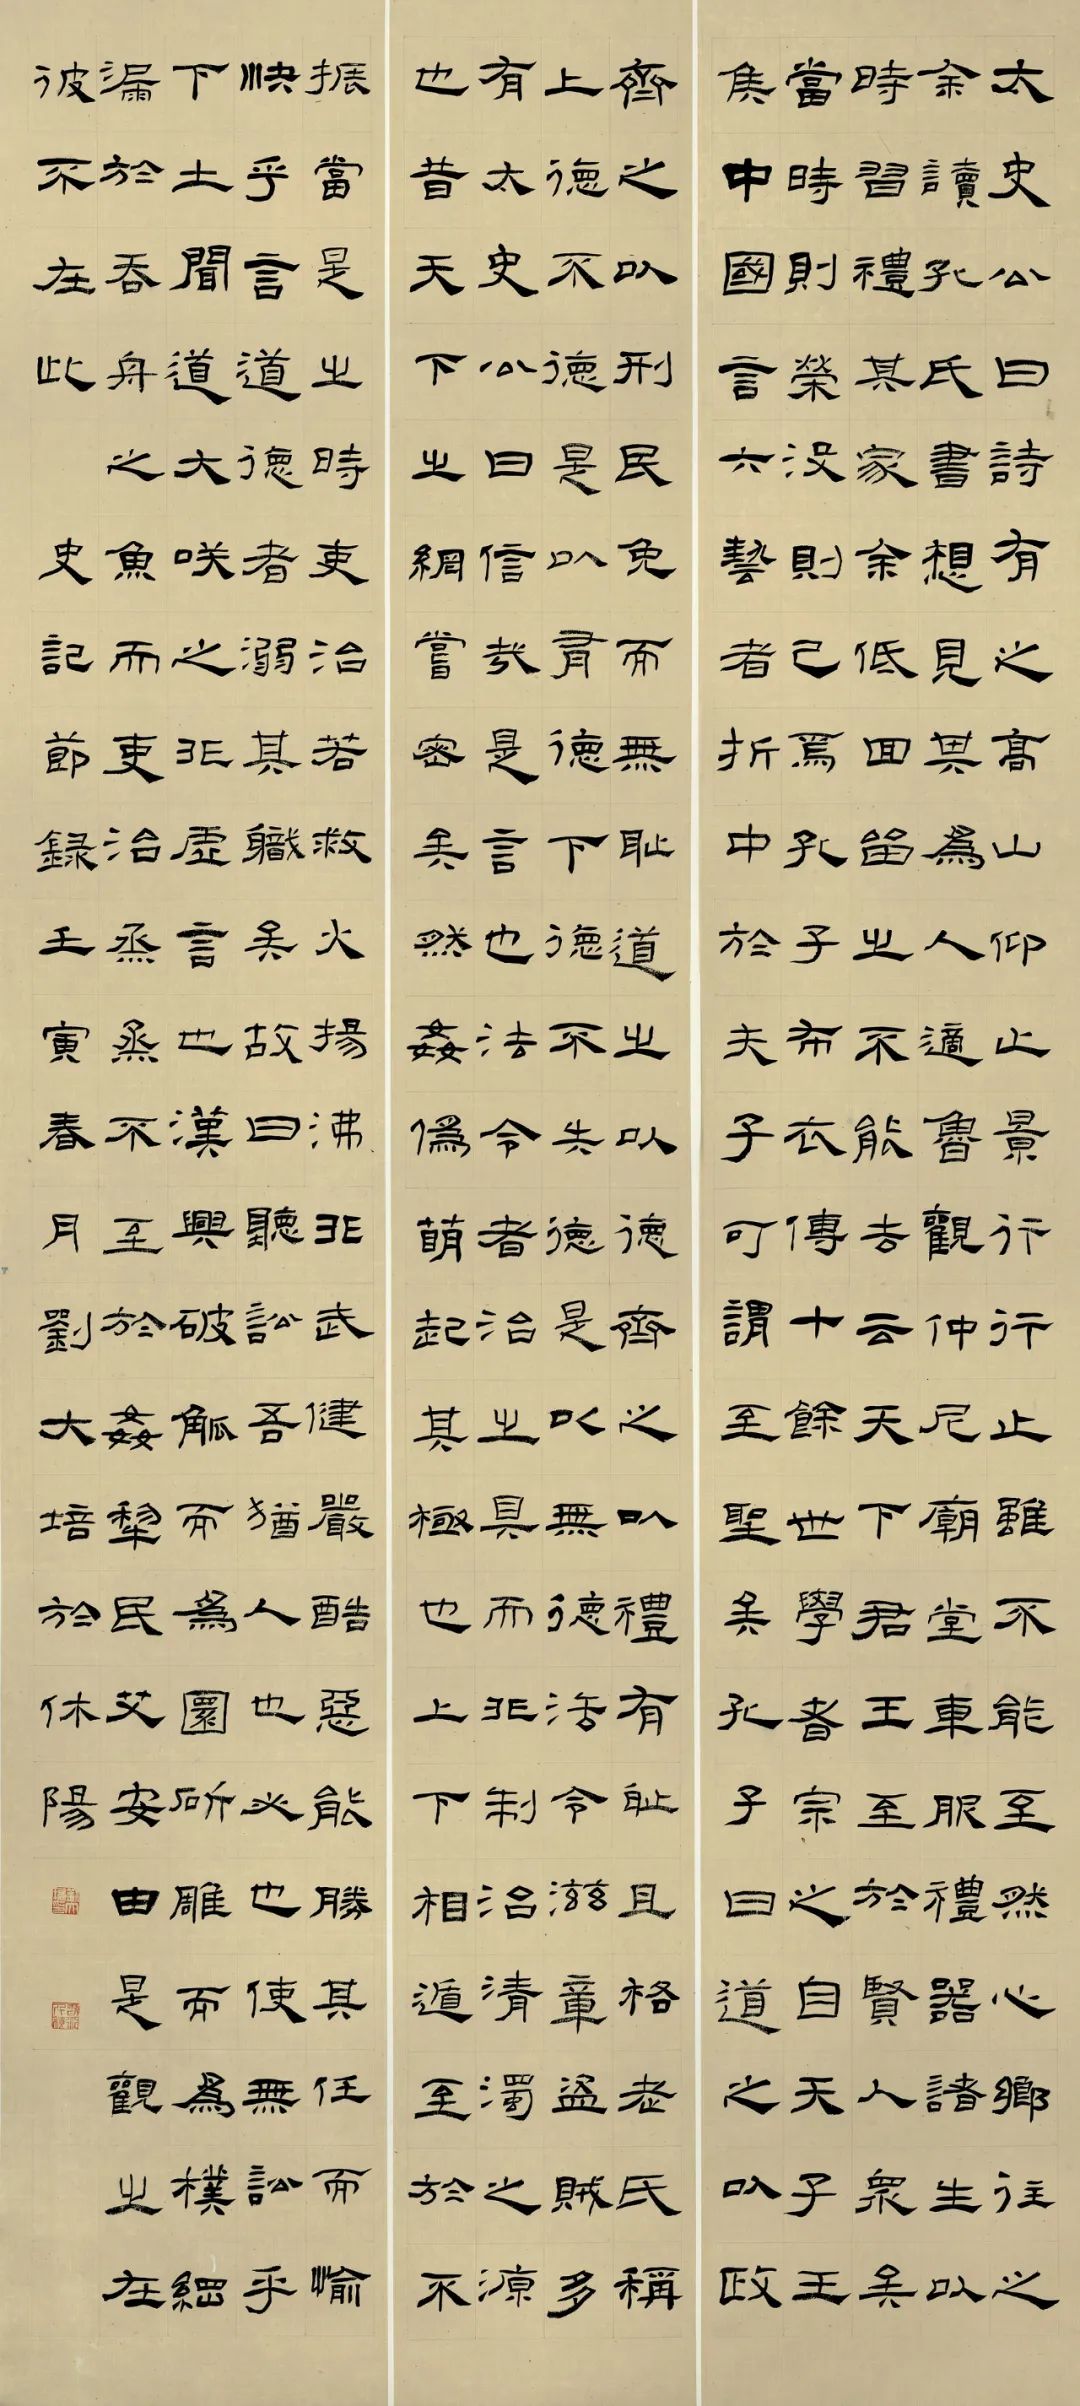 太史公曰詩有之高山仰止景行行止雖不能至然心鄉往之
余讀孔氏書想見其為人適魯觀仲尼廟堂車服禮器諸生以
時習禮其家余低回留之不能去云天下君王至於賢人眾矣
當時則榮没則已焉孔子布衣傳十餘世學者宗之自天子王
矦中國言六藝者折中於夫子可謂至聖矣孔子曰道之以政
齊之以刑民免而無恥道之以德齊之以禮有恥且格老氏稱
上德不德是以有德下德不失德是以無德法令滋章盜賊多
有太史公曰信哉是言也法令者治之具而非制治清濁之源
也昔天下之網嘗密矣然姦偽萌起其極也上下相遁至於不
振當是之時吏治若救火揚沸非武健嚴酷惡能勝其任而愉
快乎言道德者溺其職矣故曰聽訟吾猶人也必也使無訟乎
下士聞道大咲之非虛言也漢興破觚而為圜斫雕而為樸網
漏於吞舟之魚而吏治烝烝不至於姦黎民艾安由是觀之在
彼不在此 史記節錄壬寅春月劉大培於休陽